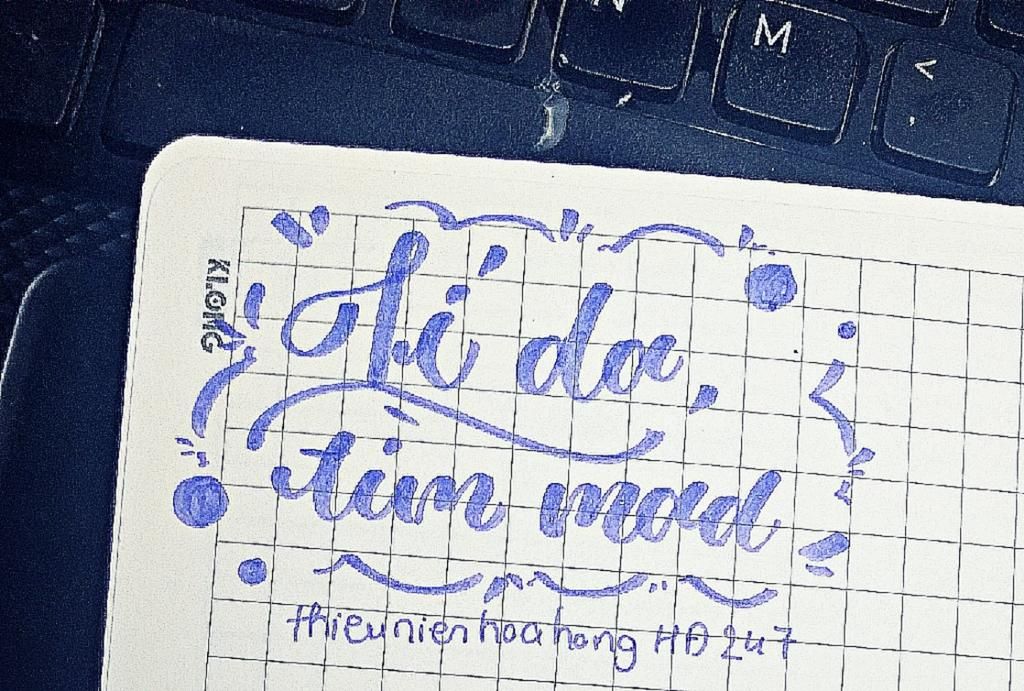 N
M
<
,
KLONG
da,
tim mad
thieunienhoahong HD 247